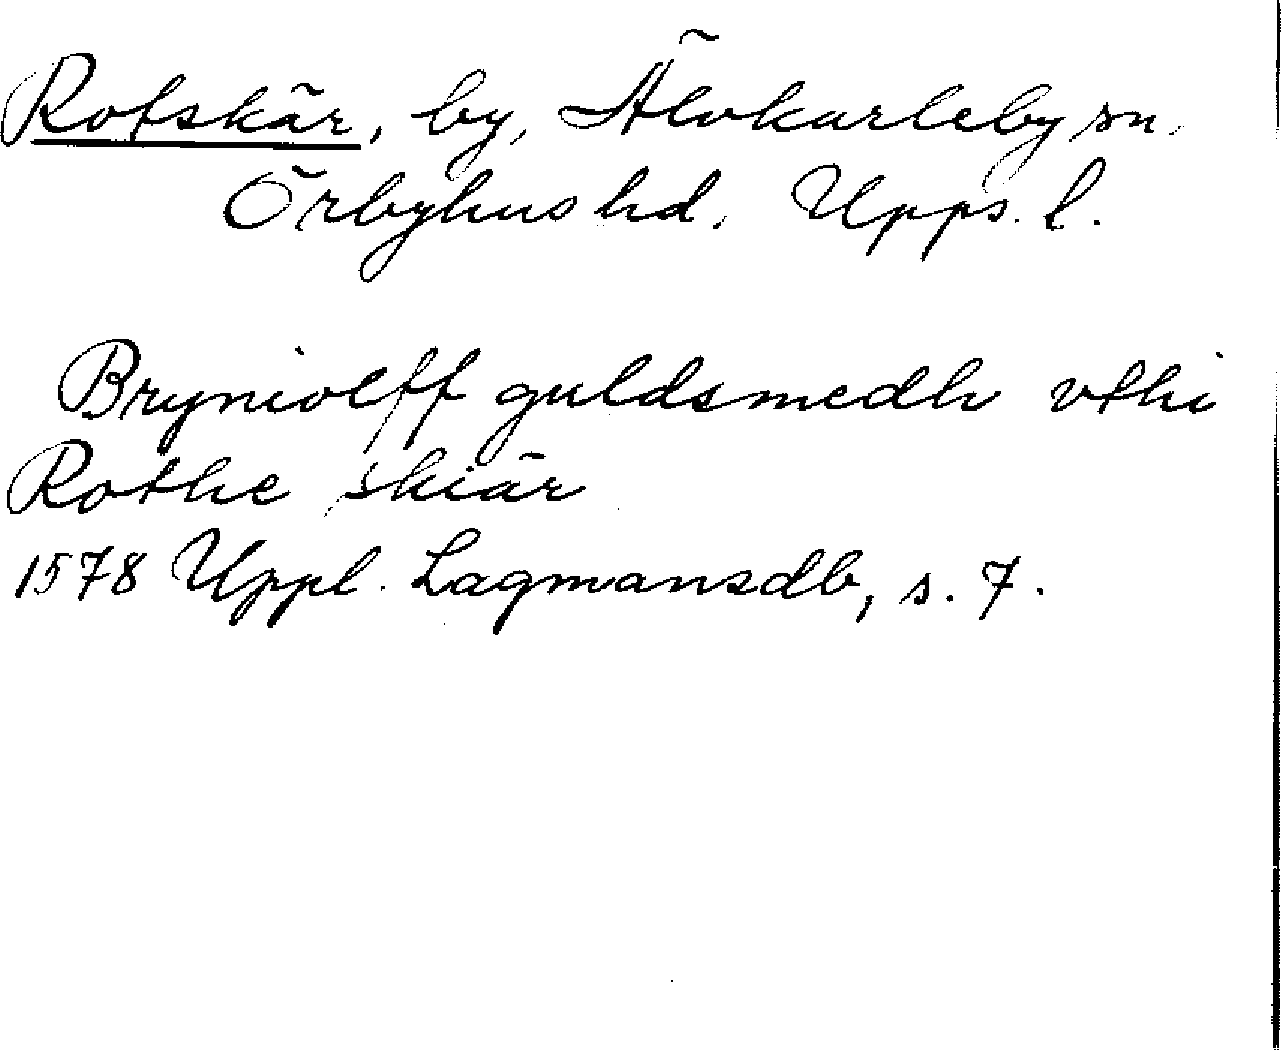 Rotskär, by, Älvkarleby sn,
Örbyhus hd. Upps. l.
Bryniolff guldsmedh vthi
Rothe skiär
1578 Uppl. Lagmansdb, s. 7.